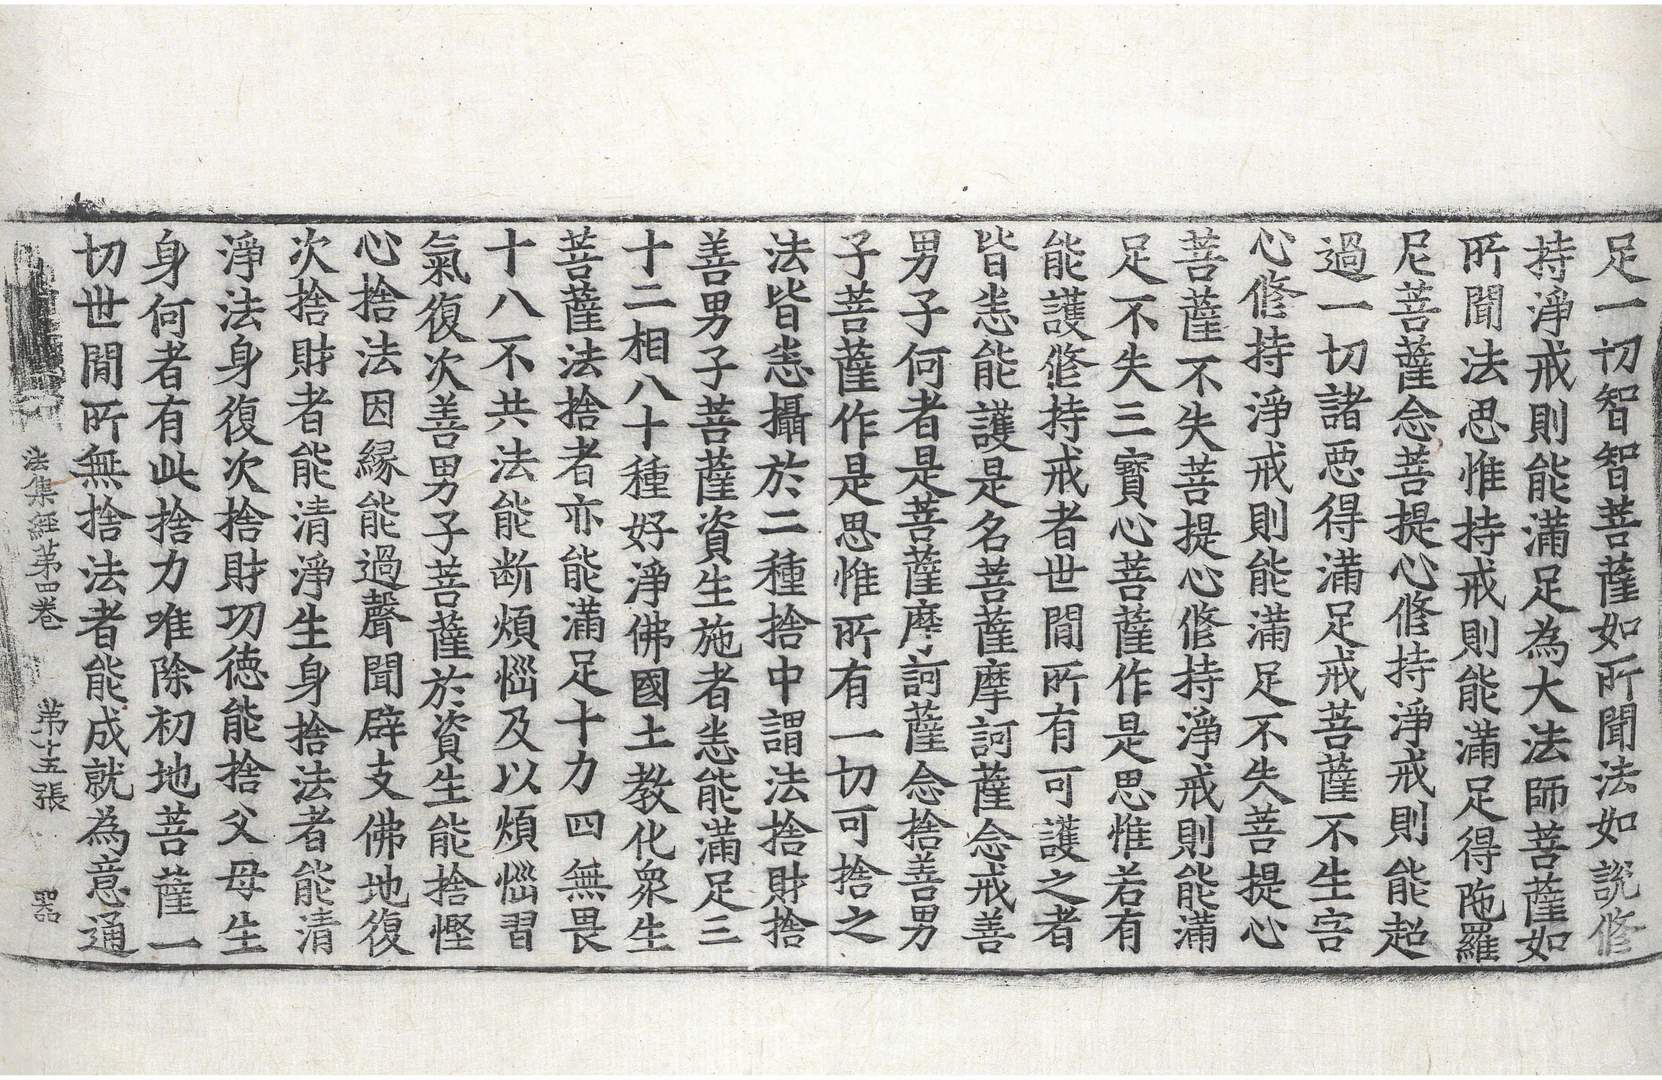 足一切智智菩薩如所聞法如說修
持淨戒則能滿足為大法師菩薩如
所聞法思惟持戒則能滿足得陁羅
尼菩薩念菩提心修持淨戒則能超
過一切諸惡得滿足戒菩薩不生害
心修持淨戒則能滿足不失菩提心
菩薩不失菩提心修持淨戒則能滿
足不失三寶心菩薩作是思惟若有
能護修持戒者世間所有可護之者
皆悉能護是名菩薩摩訶薩念戒善
男子何者是菩薩摩訶薩念捨善男
子菩薩作是思惟所有一切可捨之
法皆悉攝於二種捨中謂法捨財捨
善男子菩薩資生施者悉能滿足三
十二相八十種好淨佛國土教化衆生
菩薩法捨者亦能滿足十力四無畏
十八不共法能断煩惱及以煩惱習
氣復次善男子菩薩於資生能捨慳
心捨法因緣能過聲聞辟支佛地復
次捨財者能清淨生身捨法者能清
淨法身復次捨財功德能捨父母生
身何者有此捨力唯除初地菩薩一
切世間所無捨法者能成就為意通
法集經第四卷 第十五張 器